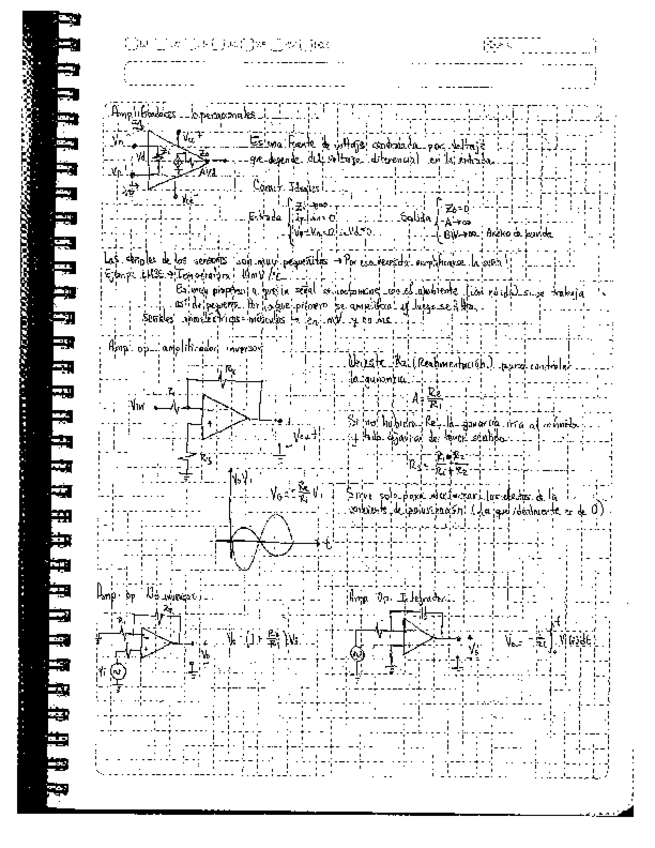 Amplificadores operacionales
Vcc +
Vn
Vd
Zi
Zo
AVd
Vp
Vcc -
Es una fuente de voltaje controlada por voltaje
que depende del voltaje diferencial en la entrada.
Caract. Ideales
Entrada
Zi→∞
ip = in = 0
Vp = Vn = 0 Vd = 0
Salida
Zo = 0
A→∞
BW→∞ Ancho de banda
Las señales de los sensores son muy pequeñitas → Por eso necesita amplificarse la señal
Ejemp. LM35 → Temperatura 10mV/°C
Es muy propenso a que la señal se contamine con el ambiente (con ruido) si se trabaja
así de pequeña. Por lo que primero se amplifica y luego se filtra.
Señales mioeléctricas = músculos → en mV y en ms
Amp. op amplificador inversor
Vin
R1
R2
R3
Vout
Existe R2 (Realimentación) para controlar
la ganancia
A = R2/R1
Si no hubiera R2 la ganancia iría al infinito
y todo dejaría de tener sentido
R3 = R1 * R2 / R1 + R2
Vo Vi
Vo = - R2/R1 Vi
t
Sirve solo para los efectos de la
corriente de polarización (La que idealmente es de 0)
Amp. op No inversor
R1
R2
Vi
Vo
Vo = (1 + R2/R1) Vi
Amp Op. Integrador
Vo
Vo = - 1/RC ∫ Vi(t)dt